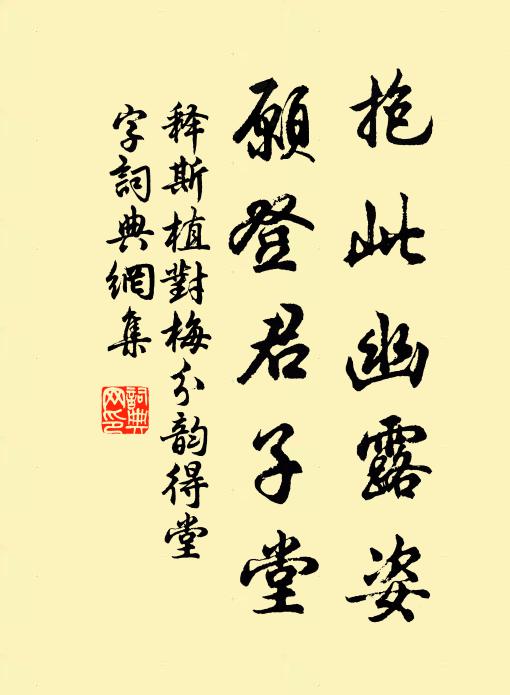 抱此幽露姿
願登君子堂
释斯植對梅分韵得堂
字詞典網集
詞典
网印